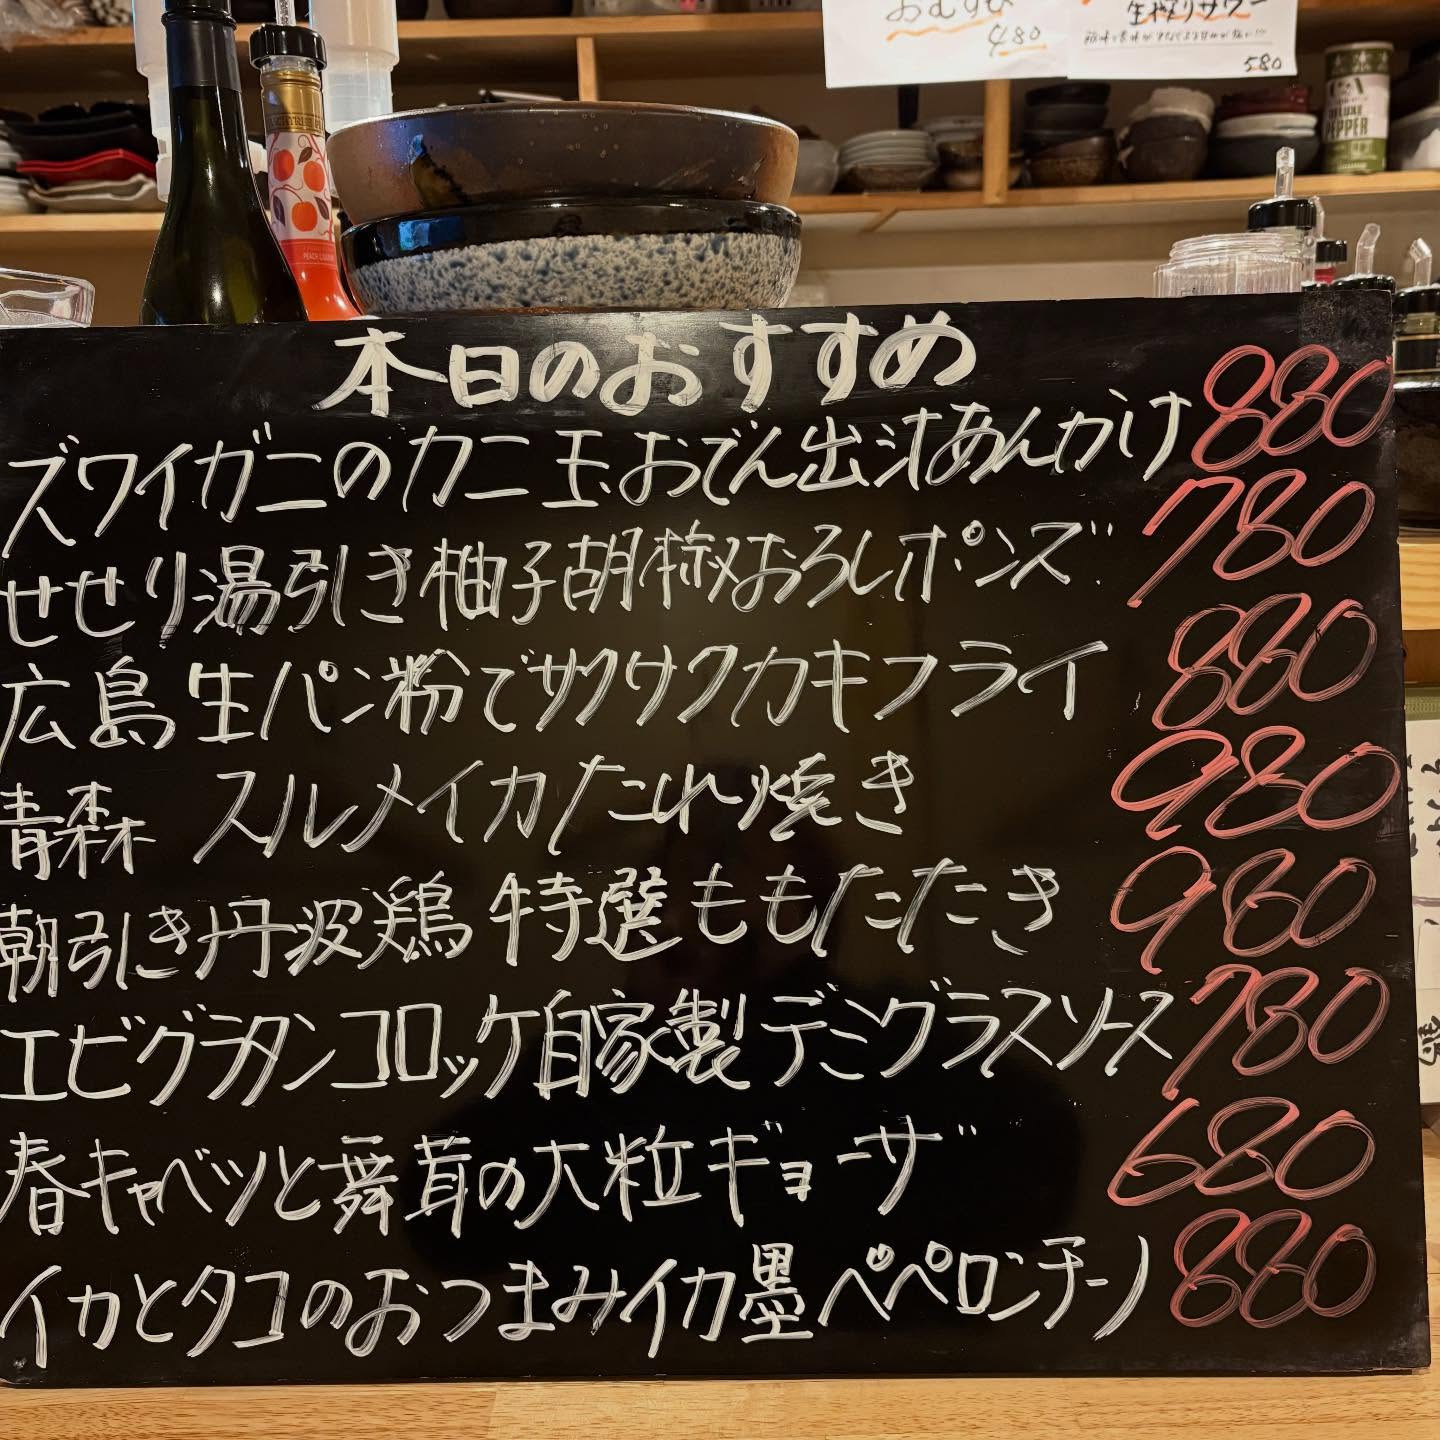 おむすび
480
生搾りサワー
580
PEPPER
PEACH LIQUEUR
本日のおすすめ
ズワイガニのカニ玉おでん出汁あんかけ 880
せせり湯引き柚子胡椒おろしポンズ 780
広島生パン粉でサクサクカキフライ 880
青森 スルメイカたれ焼き 980
朝引き丹波鶏 特選ももたたき 980
エビグラタンコロッケ自家製デミグラスソース 780
春キャベツと舞茸の大粒ギョーザ 680
イカとタコのおつまみイカ墨ペペロンチーノ 880